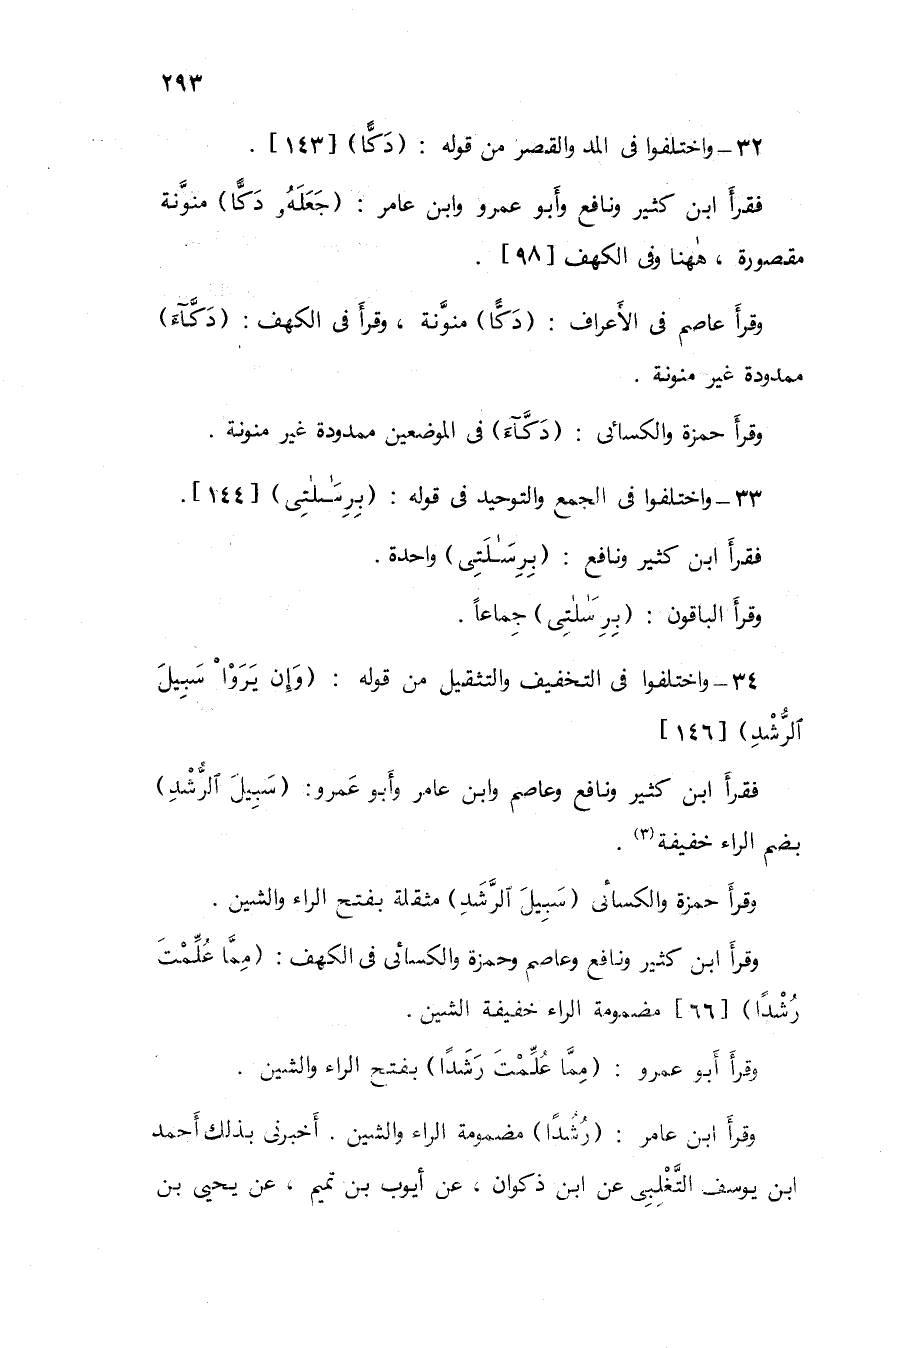 ٢٩٣
٣٢ – واختلفوا فى المد والقصر من قوله : (دَكًّا) [١٤٣] .
فقرأَ ابن كثير ونافع وأَبو عمرو وابن عامر : (جَعَلَهُۥ دَكًّا) منوَّنة
مقصورة ، هٰهنا وفى الكهف [٩٨] .
وقرأَ عاصم فى الأَعراف : (دَكًّا) منوَّنة ، وقرأَ فى الكهف : (دَكَّآءَ)
ممدودة غير منونة .
وقرأَ حمزة والكسائى : (دَكَّآءَ) فى الموضعين ممدودة غير منونة .
٣٣ – واختلفوا فى الجمع والتوحيد فى قوله : (بِرِسَٰلَٰتِى) [١٤٤] .
فقرأَ ابن كثير ونافع : (بِرِسَٰلَتِى) واحدة .
وقرأَ الباقون : (بِرِسَٰلَٰتِى) جِماعاً .
٣٤ – واختلفوا فى التخفيف والتثقيل من قوله : (وَإِن يَرَوْا۟ سَبِيلَ
ٱلرُّشْدِ) [١٤٦]
فقرأَ ابن كثير ونافع وعاصم وابن عامر وأَبو عَمرو: (سَبِيلَ ٱلرُّشْدِ)
بضم الراء خفيفة (٣) .
وقرأَ حمزة والكسأنى (سَبِيلَ ٱلرَّشَدِ) مثقلة بفتح الراء والشين .
وقرأَ ابن كثير ونافع وعاصم وحمزة والكسأئى فى الكهف : (مِمَّا عُلِّمْتَ
رُشْدًا) [٦٦] مضمومة الراء خفيفة الشين .
وقرأَ أَبو عمرو : (مِمَّا عُلِّمْتَ رَشَدًا) بفتح الراء والشين .
وقرأَ ابن عامر : (رُشُدًا) مضمومة الراء والشين . أَخبرنى بذلك أَحمد
ابن يوسف التَّغْلِبِى عن ابن ذكوان ، عن أيوب بن تميم ، عن يحيى بن